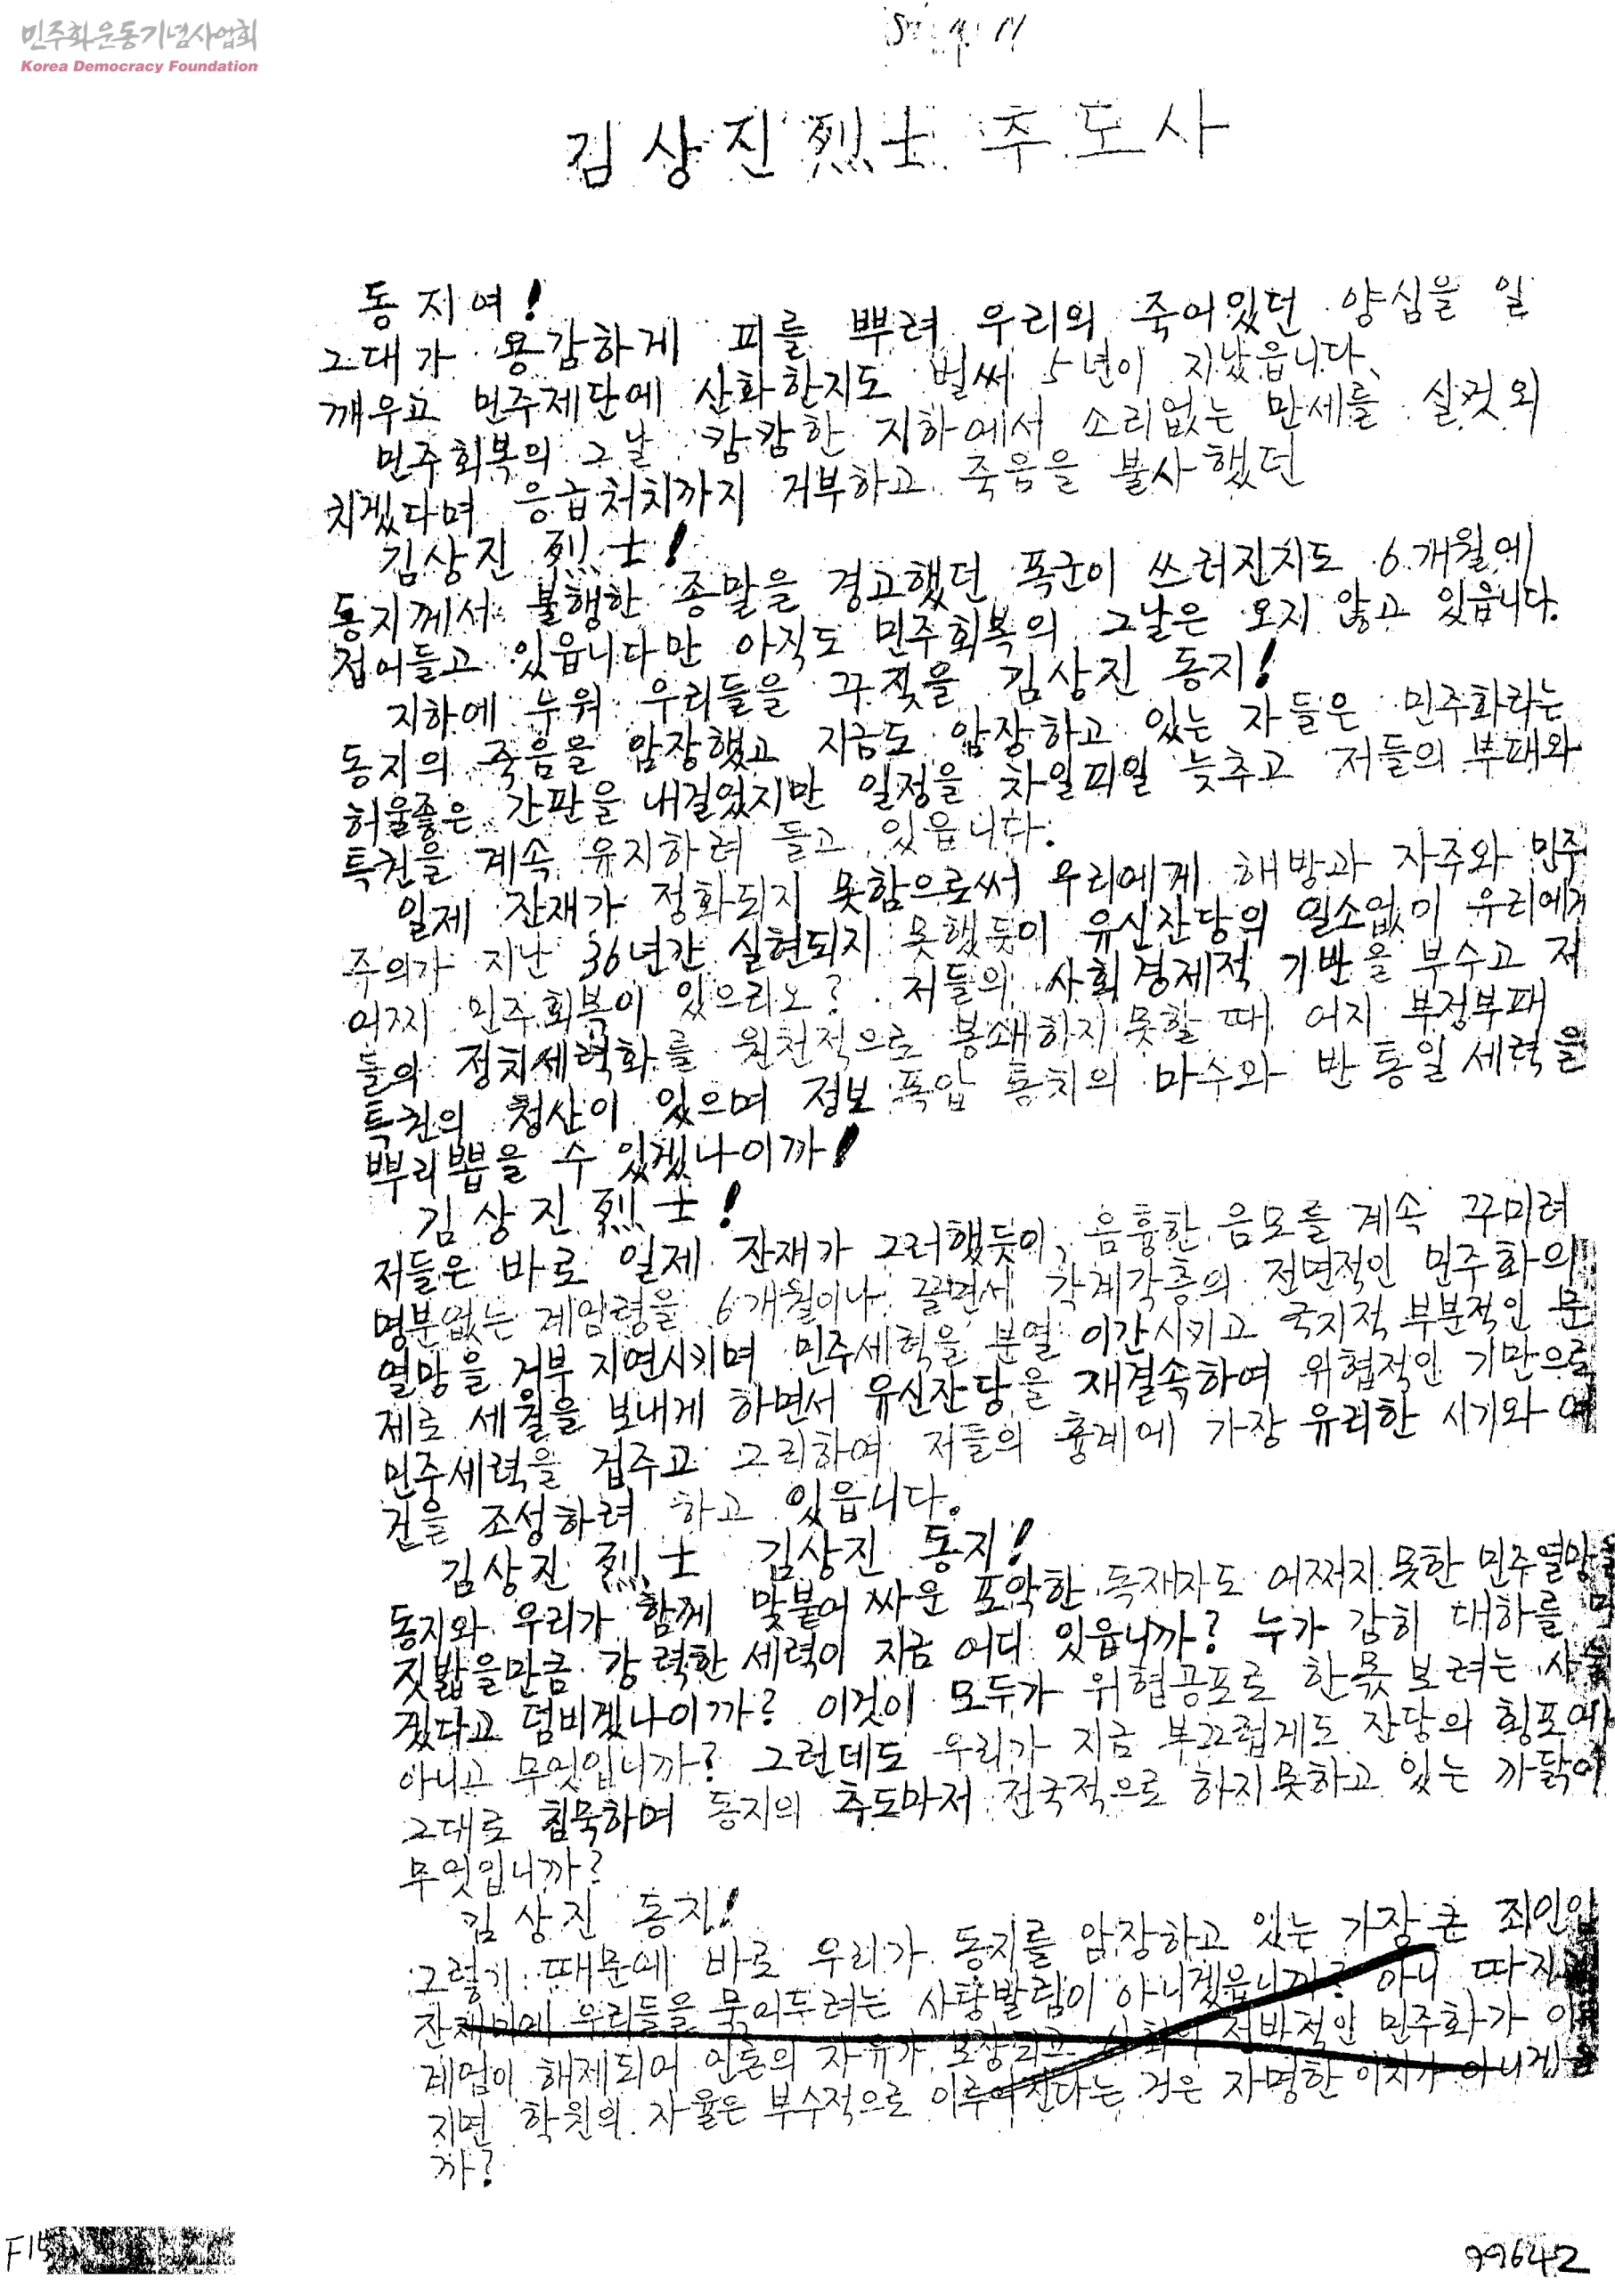 민주화운동기념사업회
Korea Democracy Foundation
김상진烈士 추도사
동지여!
그대가 용감하게 피를 뿌려 우리의 죽어있던 양심을 일
깨우고 민주제단에 산화한지도 벌써 5년이 지났읍니다.
민주회복의 그날 캄캄한 지하에서 소리없는 만세를 실컷 외
치겠다며 응급처치까지 거부하고 죽음을 불사했던
김상진 烈士!
동지께서 불행한 종말을 경고했던 폭군이 쓰러진지도 6개월에
접어들고 있읍니다만 아직도 민주회복의 그날은 오지 않고 있읍니다.
지하에 누워 우리들을 꾸짖을 김상진 동지!
동지의 죽음을 암장했고 지금도 암장하고 있는 자들은 민주화라는
허울좋은 간판을 내걸었지만 일정을 차일피일 늦추고 저들의 부패와
특권을 계속 유지하려 들고 있읍니다.
일제 잔재가 정화되지 못함으로써 우리에게 해방과 자주와 민주
주의가 지난 36년간 실현되지 못했듯이 유신잔당의 일소없이 우리에게
어찌 민주회복이 있으리오? 저들의 사회경제적 기반을 부수고 저
들의 정치세력화를 원천적으로 봉쇄하지 못할 때 어찌 부정부패
특권의 청산이 있으며 정보 폭압 통치의 마수와 반통일세력을
뿌리뽑을 수 있겠나이까!
김상진 烈士!
저들은 바로 일제 잔재가 그러했듯이, 음흉한 음모를 계속 꾸미려
명분없는 계엄령을 6개월이나 끌면서 각계각층의 전면적인 민주화의
열망을 거부 지연시키며 민주세력을 분열 이간시키고 국지적 부분적인 문
제로 세월을 보내게 하면서 유신잔당을 재결속하여 위협적인 기만으로
민주세력을 겁주고 그리하여 저들의 흉계에 가장 유리한 시기와 여
건을 조성하려 하고 있읍니다.
김상진 烈士 김상진 동지!
동지와 우리가 함께 맞붙어 싸운 포악한 독재자도 어쩌지 못한 민주열망을
짓밟을만큼 강력한 세력이 지금 어디 있읍니까? 누가 감히 대하를 막
겠다고 덤비겠나이까? 이것이 모두가 위협공포로 한몫 보려는
아니고 무엇입니까? 그런데도 우리가 지금 부끄럽게도 잔당의 횡포에
그대로 침묵하며 동지의 추도마저 전국적으로 하지 못하고 있는 까닭이
무엇입니까?
김상진 동지!
그렇기 때문에 바로 우리가 동지를 암장하고 있는 가장 큰 죄인이
우리들을 묶어두려는 사탕발림이 아니겠읍니까? 아니 따지
계엄이 해제되어 언론의 자유가 보장되고 사회의 전반적인 민주화가 이
지면 학원의 자율은 부수적으로 이루어진다는 것은 자명한 이치가 아니겠
까?
99642